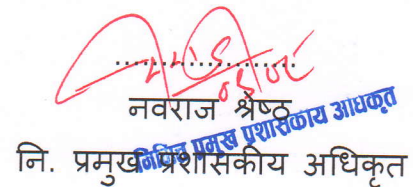 ....................
नवराज श्रेष्ठ
नि. प्रमुख प्रशासकीय अधिकृत
प्रमुख प्रशासकीय अधिकृत